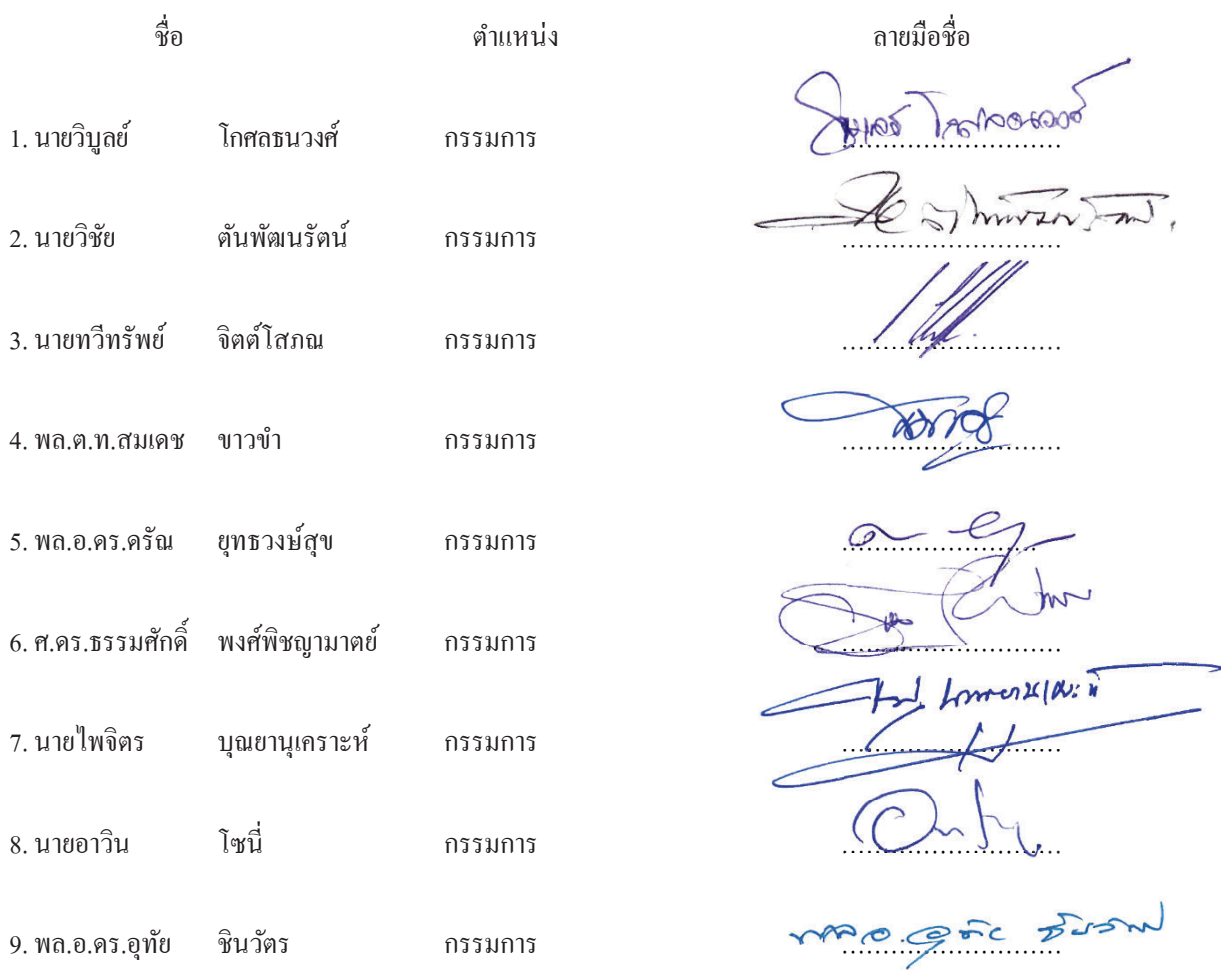 ชื่อ ตำแหน่ง ลายมือชื่อ
1. นายวิบูลย์ โกศลธนวงศ์ กรรมการ
2. นายวิชัย ตันพัฒนรัตน์ กรรมการ
3. นายทวีทรัพย์ จิตต์โสภณ กรรมการ
4. พล.ต.ท.สมเดช ขาวขำ กรรมการ
5. พล.อ.ดร.ดรัณ ยุทธวงษ์สุข กรรมการ
6. ศ.ดร.ธรรมศักดิ์ พงศ์พิชญามาตย์ กรรมการ
7. นายไพจิตร บุณยานุเคราะห์ กรรมการ
8. นายอาวิน โซนี่ กรรมการ
9. พล.อ.ดร.อุทัย ชินวัตร กรรมการ